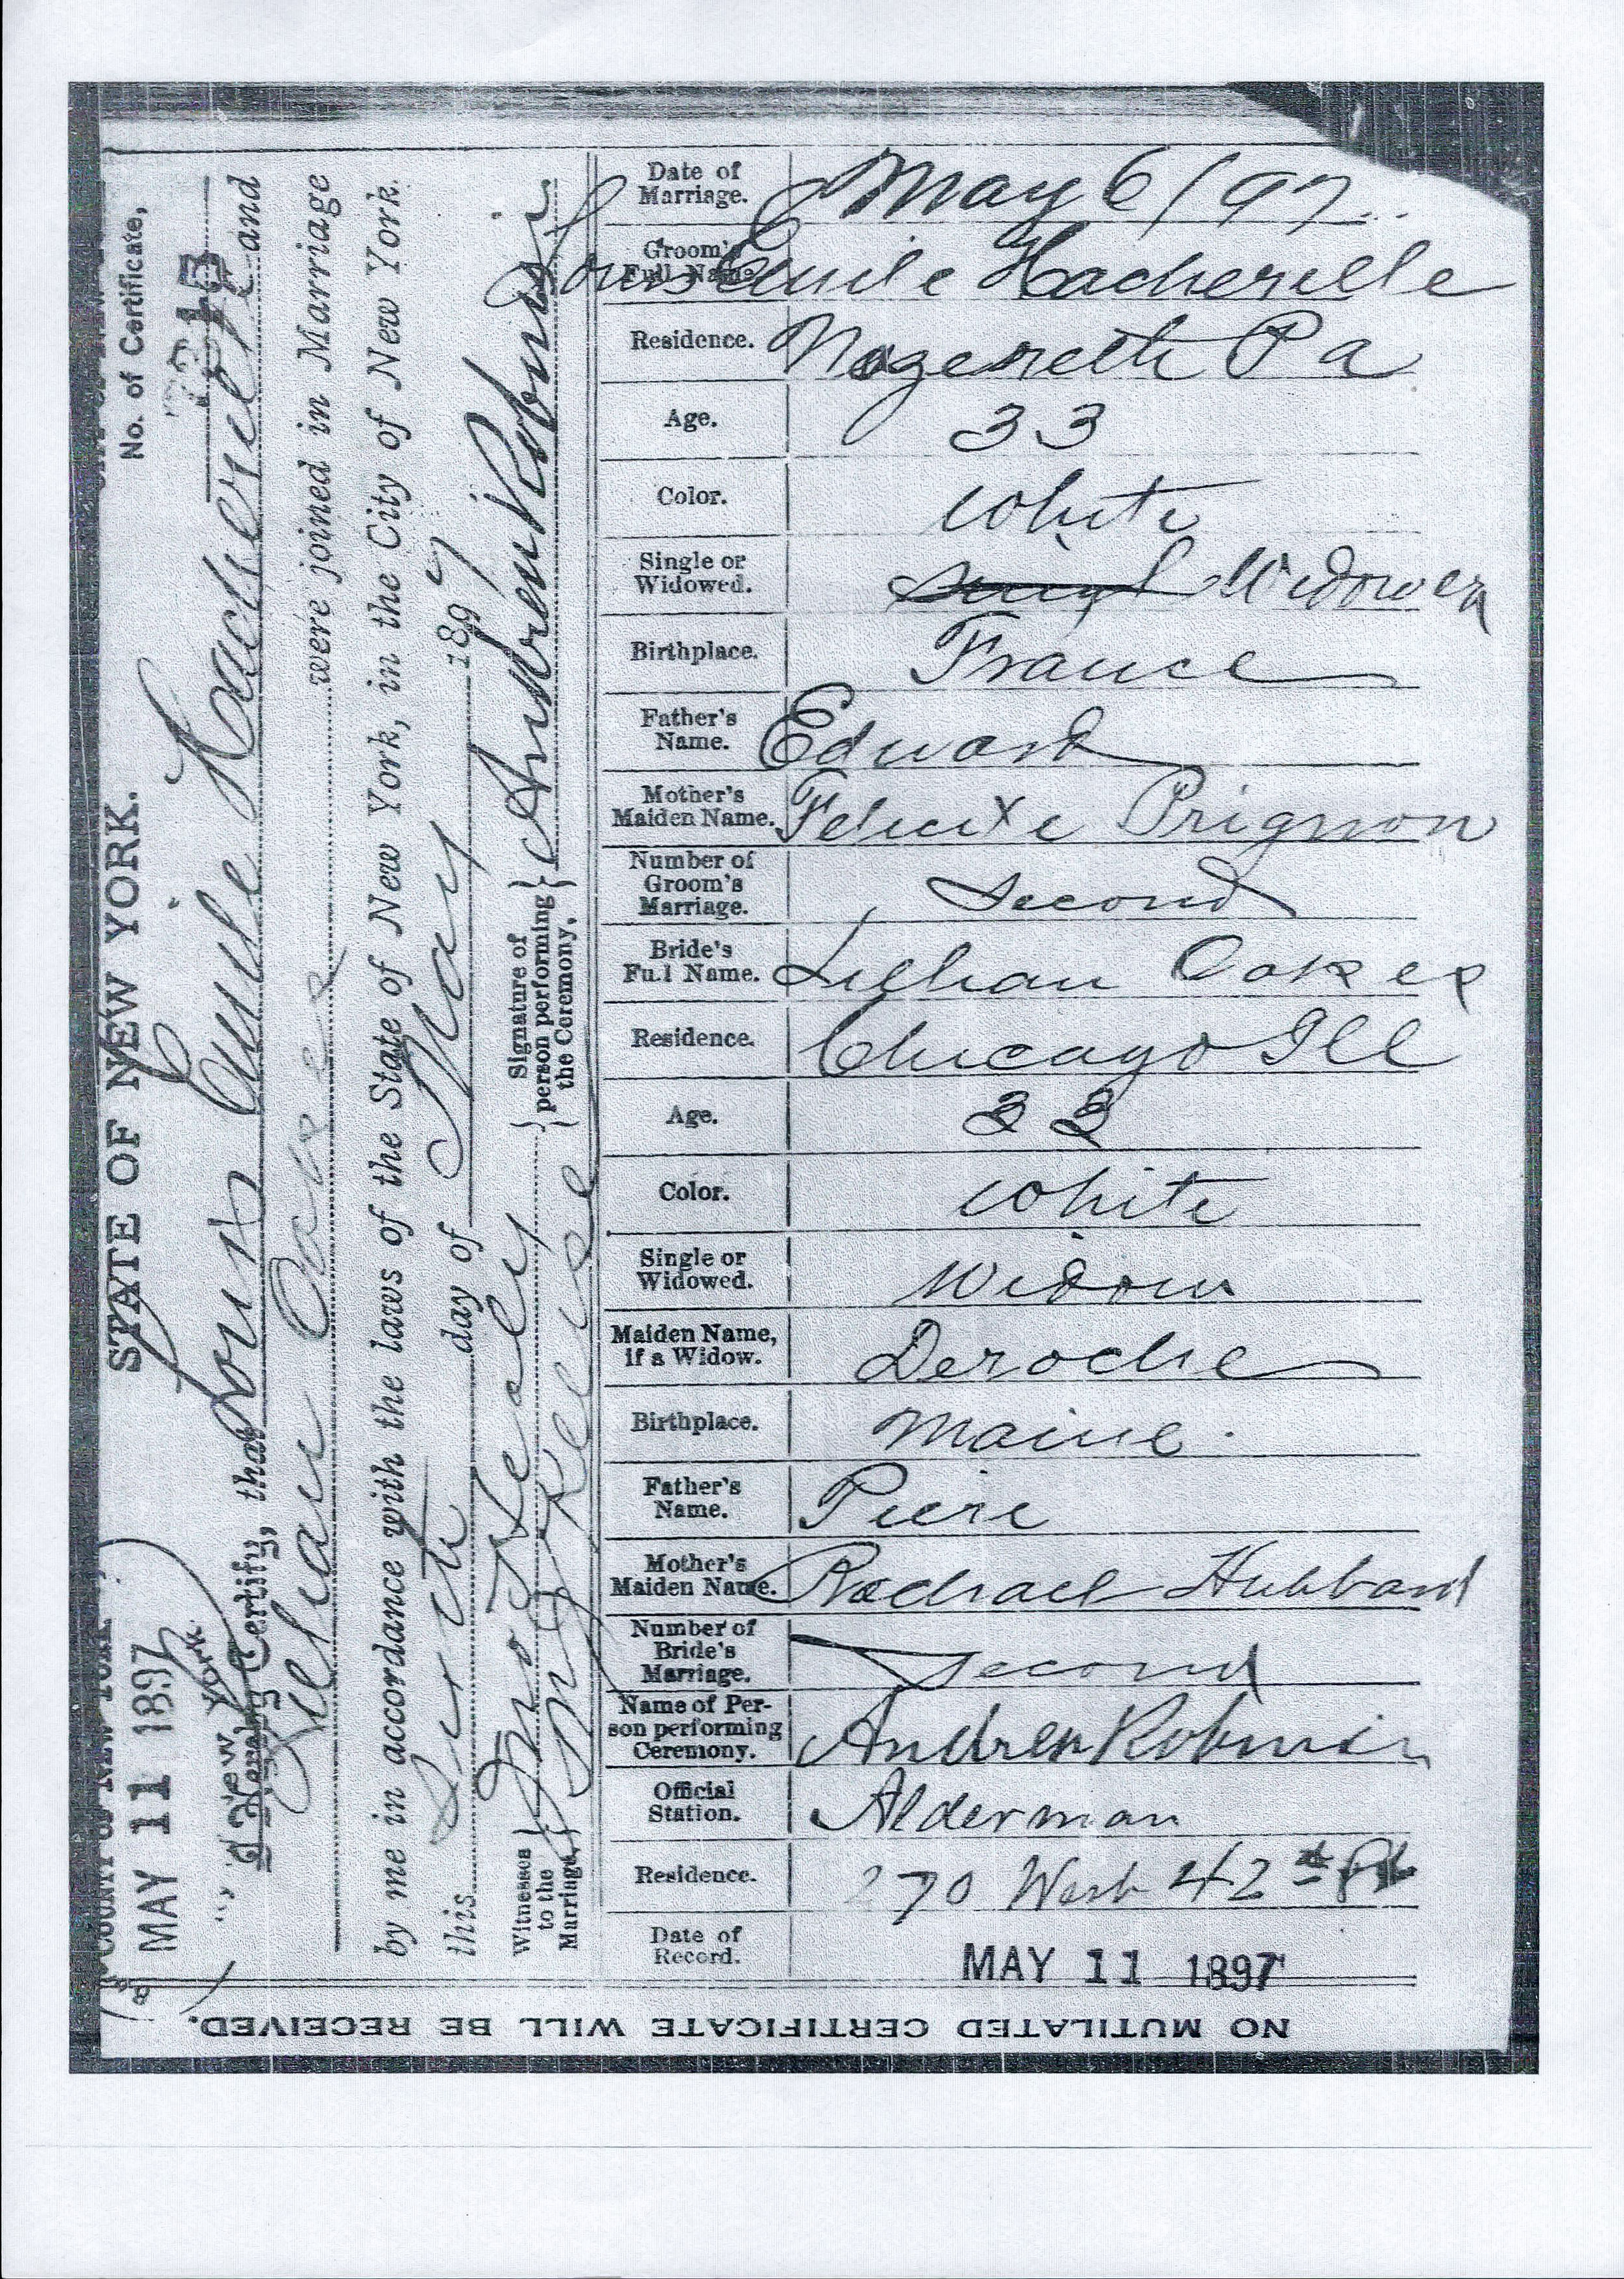 STATE OF NEW YORK.
No. of Certificate,
MAY 11 1897
New York
I Hereby Certify, that Louis Emile Hacherelle and
Lillian Oakes were joined in Marriage
by me in accordance with the laws of the State of New York, in the City of New York.
this Sixth day of May 1897
Witnesses to the Marriage,
Signature of person performing the Ceremony, Andrew Robinson
Date of Marriage. May 6/97
Groom's Full Name. Louis Emile Hacherelle
Residence. Nazereth Pa
Age. 33
Color. White
Single or Widowed. Widower
Birthplace. France
Father's Name. Edward
Mother's Maiden Name. Felicite Prignon
Number of Groom's Marriage. Second
Bride's Full Name. Lillian Oakes
Residence. Chicago Ill
Age.
Color. White
Single or Widowed. Widow
Maiden Name, if a Widow. Deroche
Birthplace. Maine
Father's Name. Piere
Mother's Maiden Name. Rachael Hubbard
Number of Bride's Marriage. Second
Name of Person performing Ceremony. Andrew Robinson
Official Station. Alderman
Residence. 270 West 42nd St
Date of Record. MAY 11 1897
NO MUTILATED CERTIFICATE WILL BE RECEIVED.